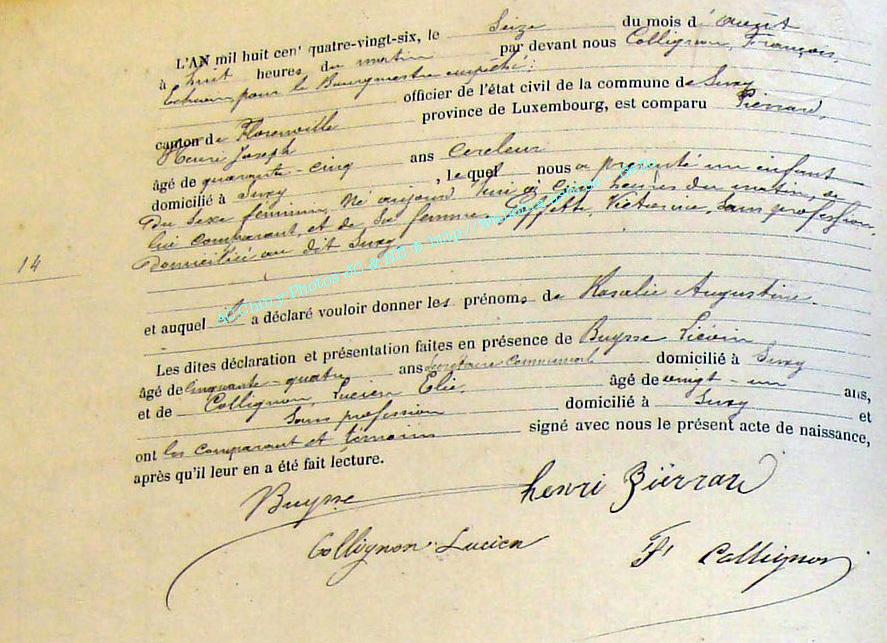 L'AN mil huit cent quatre-vingt-six, le Seize du mois d'août
à huit heures du matin par devant nous Collignon, François,
Echevin pour le Bourgmestre empêché:
officier de l'état civil de la commune de Suxy
canton de Florenville province de Luxembourg, est comparu Pierrard,
Henri Joseph
âgé de quarante-cinq ans Cercleur
domicilié à Suxy, lequel nous a présenté un enfant
du sexe féminin, né aujourd'hui à cinq heures du matin, de
lui comparant et de sa femme, Victorine, sans profession,
domiciliée au dit Suxy
14
et auquel il a déclaré vouloir donner les prénoms de Rosalie Augustine.
Les dites déclaration et présentation faites en présence de Buysse Liévin
âgé de cinquante-quatre ans Secrétaire communal domicilié à Suxy
et de Collignon, Lucien Elie, âgé de vingt-un ans,
Sans profession domicilié à Suxy et
ont les comparant et témoins signé avec nous le présent acte de naissance,
après qu'il leur en a été fait lecture.
Buysse
henri Piérrard
Collignon Lucien
Fs Collignon